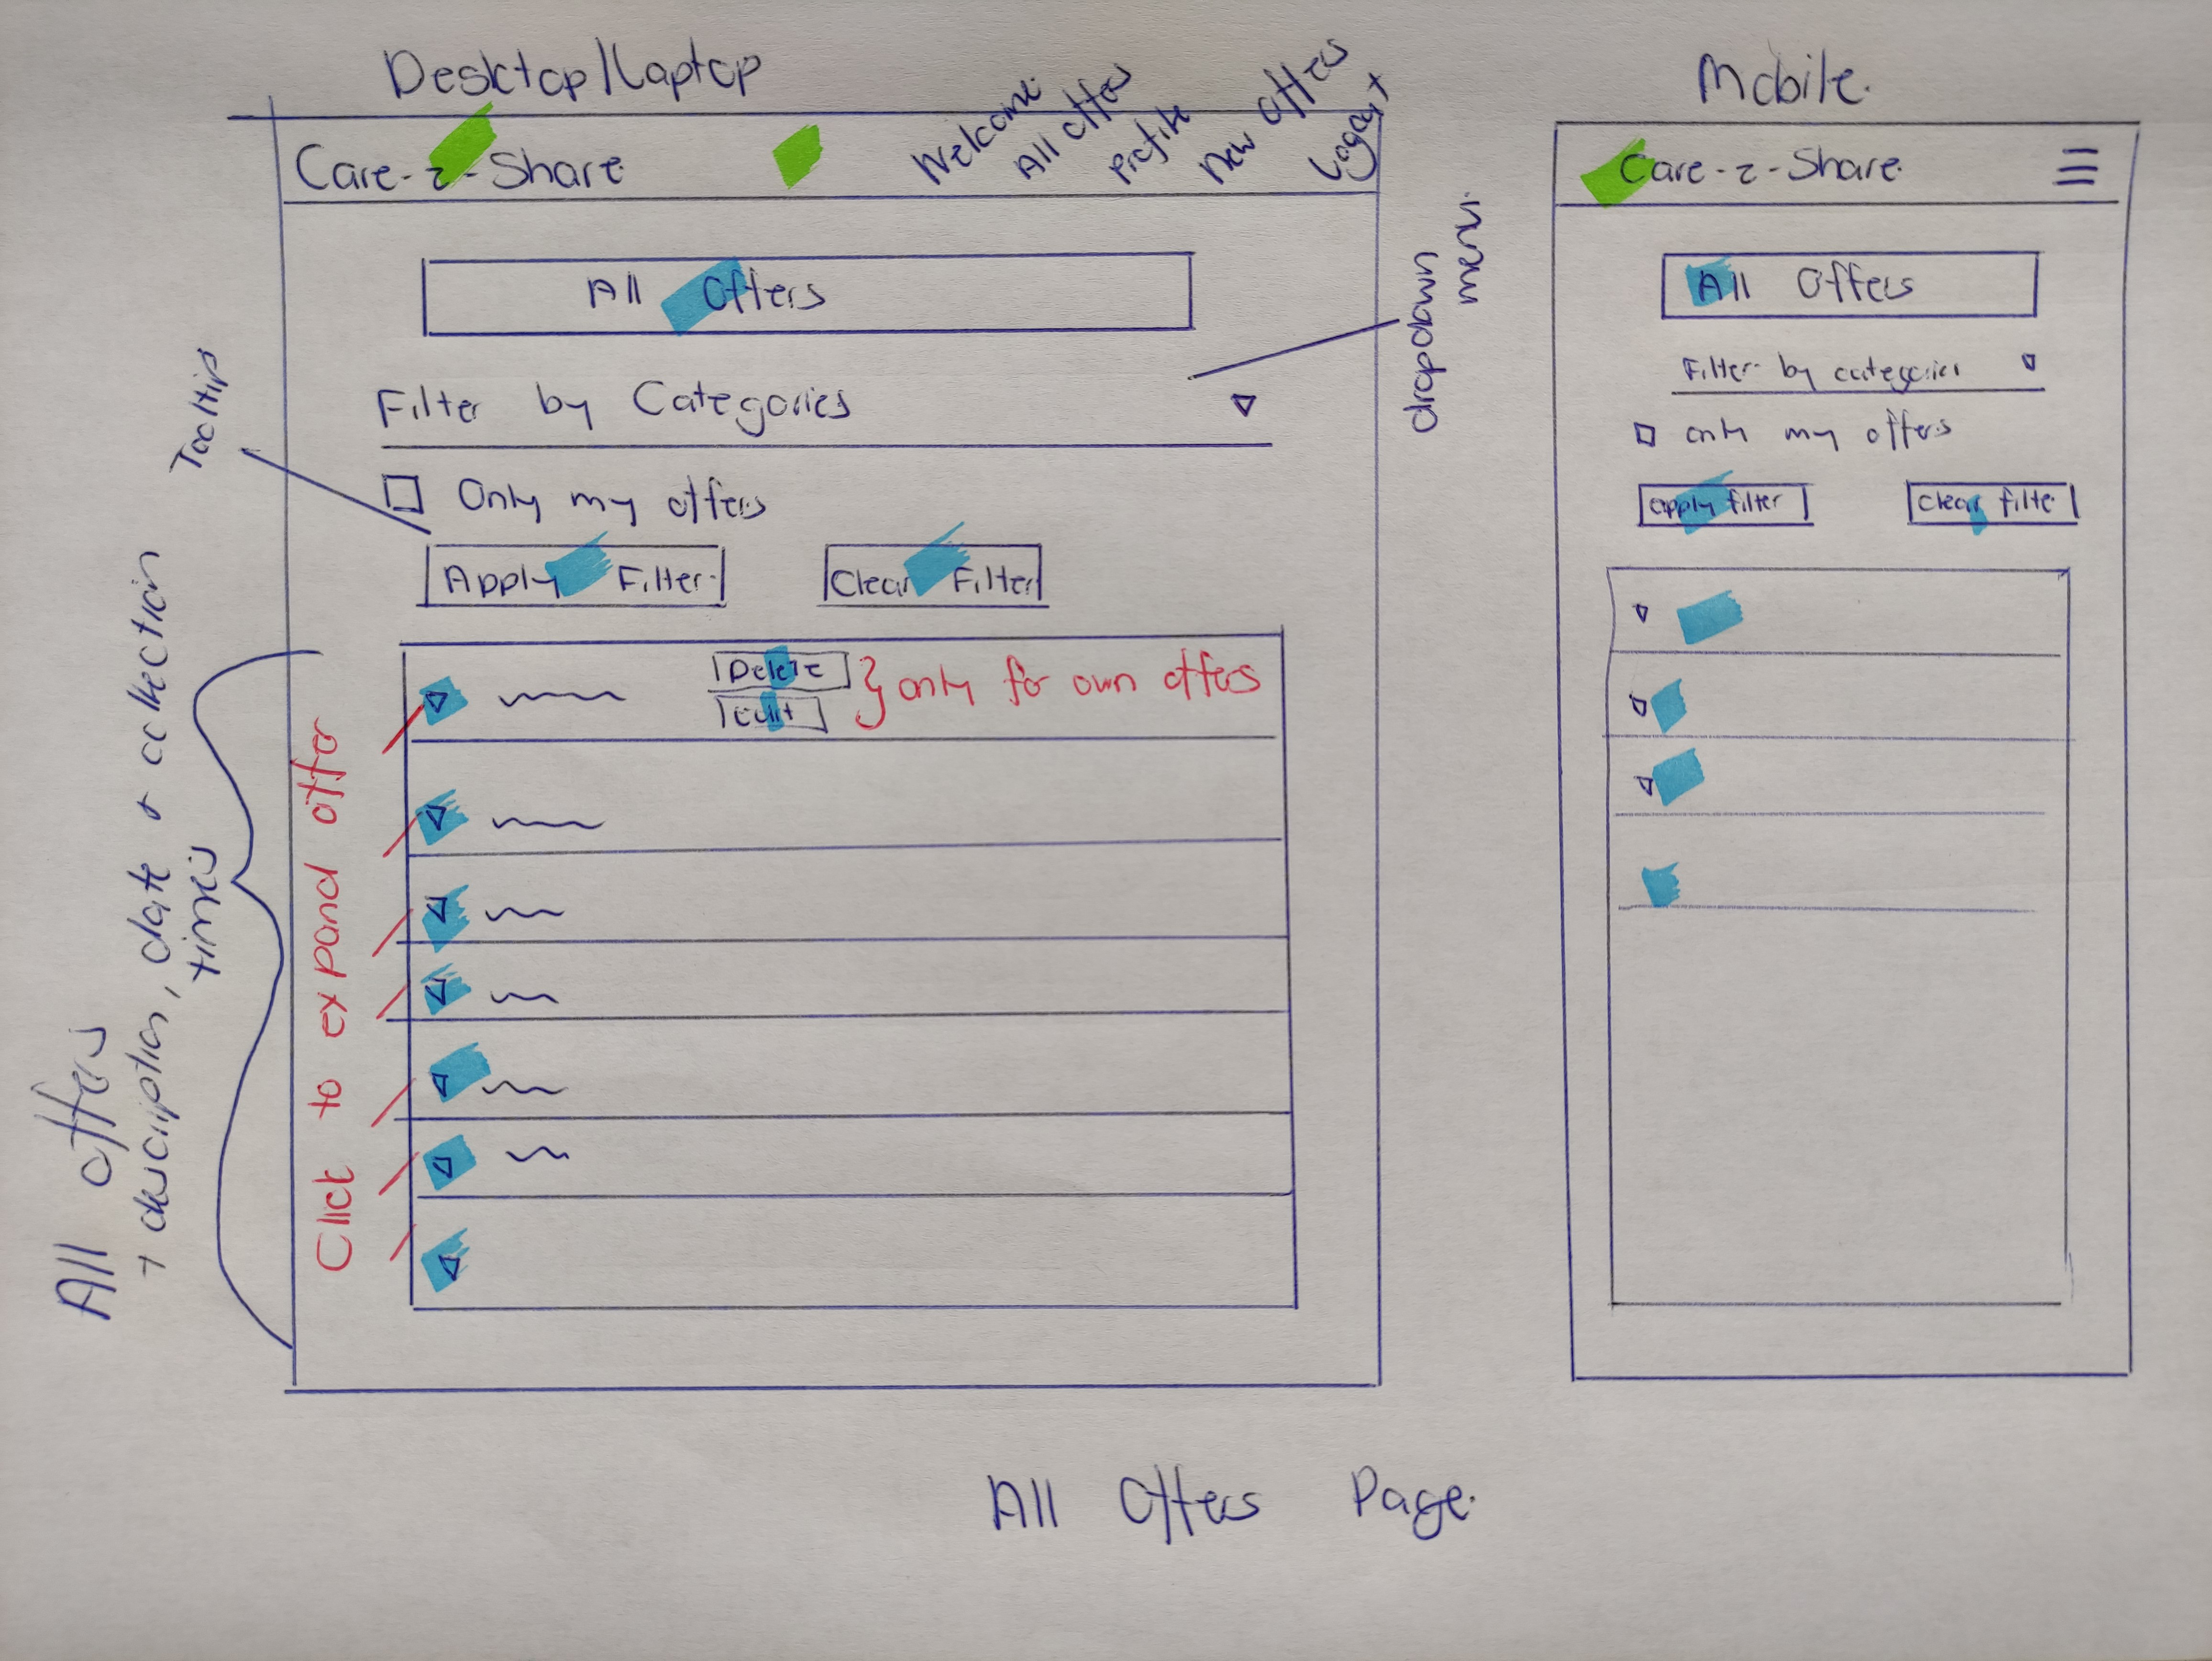 Desktop/Laptop
Care-2-Share
Welcome
All offers
Profile
New Offers
Logout
All Offers
dropdown
menu
Filter by Categories
Tooltip
Only my offers
Apply Filter
Clear Filter
Delete
Edit
} only for own offers
Click to expand offer
All offers
+ description, date & collection
times
Mobile
Care-2-Share
All Offers
Filter by categories
only my offers
apply filter
clear filte
All Offers Page